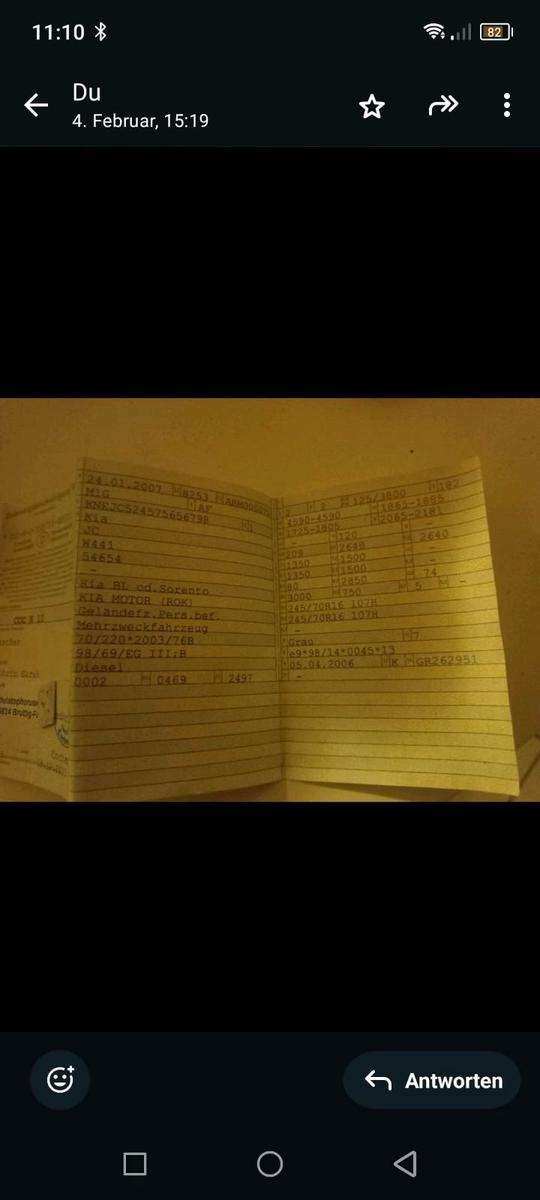 11:10
82
Du
4. Februar, 15:19
24.01.2007 8253
M1G AF
Kia
JC
W441
54654
-
Kia BL od.Sorento
KIA MOTOR (ROK)
Geländefz.Pers.bef.
Mehrzweckfahrzeug
70/220*2003/76B
98/69/EG III;B
Diesel
0002 0469 2497
2 2 125/3800 182
4590-4590 1865-1885
1725-1805 2065-2181
120 -
209 2640 2640
1350 1500 -
1350 1500 -
80 2850 74
3000 750 5 -
245/70R16 107H
245/70R16 107H
-
Grau 7
e9*98/14*0045*13
05.04.2006 K GR262951
-
COC
Antworten